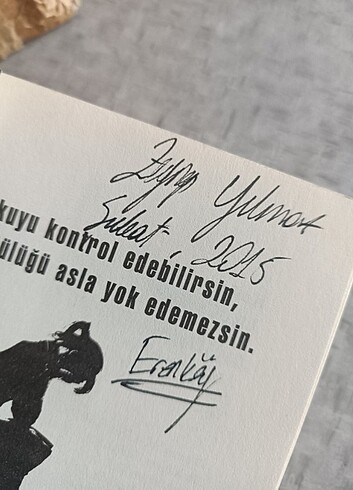 Zeynep Yılmaz
Şubat, 2015
kuyu kontrol edebilirsin,
ülüğü asla yok edemezsin.
Erenköy